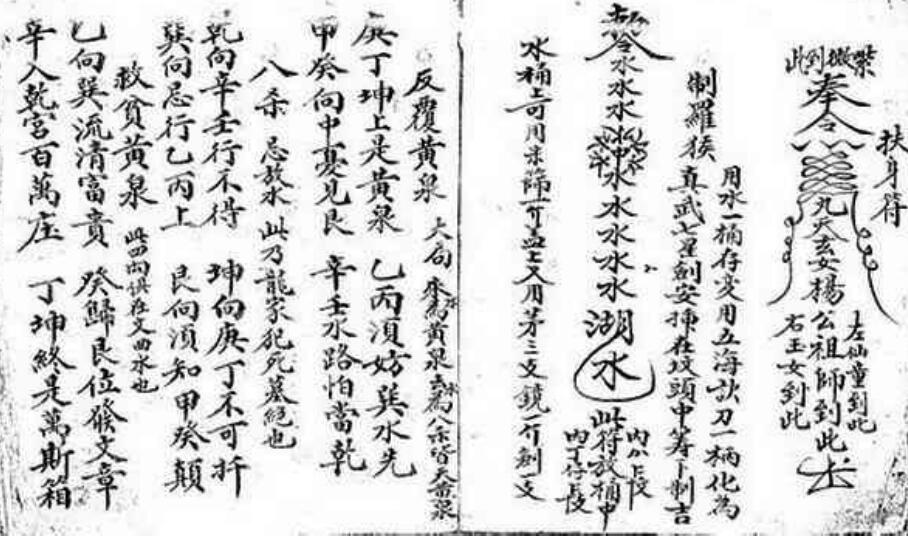 扶身符
紫微到此
奉令 九天玄女楊公祖師到此
左仙童到此
右玉女到此
用水一桶存変用五海訣刀一柄化為
制羅猴 真武七星劍安挿在坟頭中 下制吉
令水水水水水水水水湖水 此符放桶中
水桶上可用米篩一个盖上又用茅三支鏡一个劍一支
反覆黃泉 大局 來為黃泉去為八杀皆大黃泉
庚丁坤上是黃泉 乙丙須妨巽水先
甲癸向中憂見艮 辛壬水路怕當乾
八杀 忌放水 此乃龍家犯死墓絕也
乾向辛壬行不得 坤向庚丁不可扦
巽向忌行乙丙上 艮向須知甲癸顛
救貧黃泉 此四向俱在文曲水也
乙向巽流清富貴 癸歸艮位發文章
辛入乾宮百萬庄 丁坤終是萬斯箱